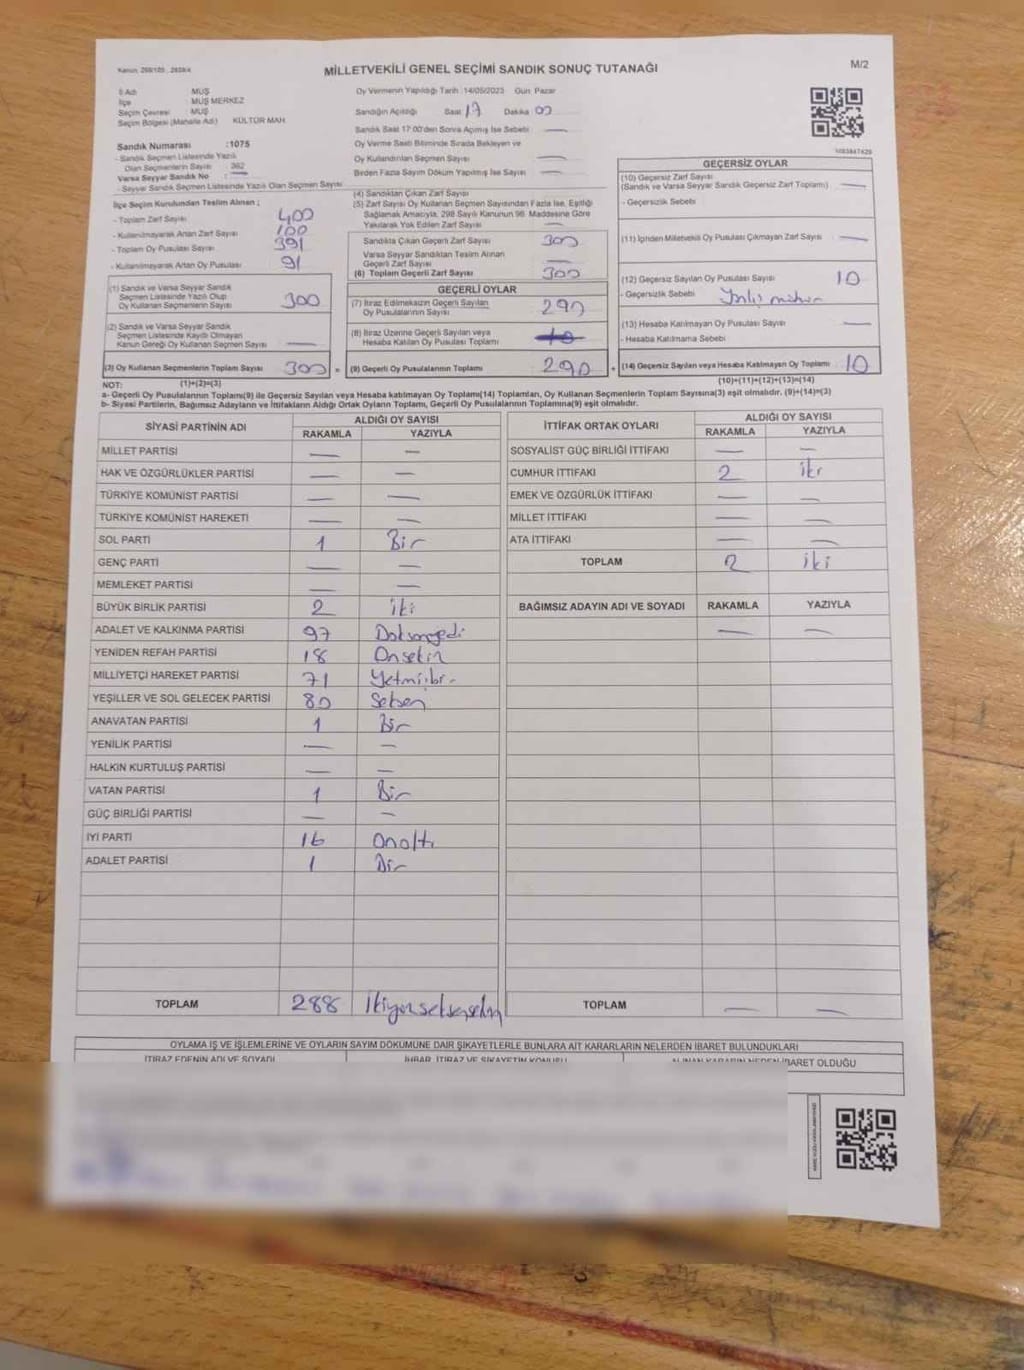 Kanun: 298/105 , 2839/4
MİLLETVEKİLİ GENEL SEÇİMİ SANDIK SONUÇ TUTANAĞI
M/2
İl Adı : MUŞ
İlçe : MUŞ MERKEZ
Seçim Çevresi : MUŞ
Seçim Bölgesi (Mahalle Adı) KÜLTÜR MAH.
Oy Vermenin Yapıldığı Tarih :14/05/2023 Gün: Pazar
Sandığın Açıldığı Saat 17 Dakika 00
Sandık Saat 17:00'den Sonra Açımış İse Sebebi —
Oy Verme Saati Bitiminde Sırada Bekleyen ve
Oy Kullandırılan Seçmen Sayısı —
Birden Fazla Sayım Döküm Yapılmış İse Sayısı —
Sandık Numarası :1075
- Sandık Seçmen Listesinde Yazılı
Olan Seçmenlerin Sayısı 362
Varsa Seyyar Sandık No : —
- Seyyar Sandık Seçmen Listesinde Yazılı Olan Seçmen Sayısı
İlçe Seçim Kurulundan Teslim Alınan ;
- Toplam Zarf Sayısı 400
- Kullanılmayarak Artan Zarf Sayısı 100
- Toplam Oy Pusulası Sayısı 391
- Kullanılmayarak Artan Oy Pusulası 91
(1) Sandık ve Varsa Seyyar Sandık
Seçmen Listesinde Yazılı Olup
Oy Kullanan Seçmenlerin Sayısı 300
(2) Sandık ve Varsa Seyyar Sandık
Seçmen Listesinde Kayıtlı Olmayan
Kanun Gereği Oy Kullanan Seçmen Sayısı —
(3) Oy Kullanan Seçmenlerin Toplam Sayısı 300 =
(4) Sandıktan Çıkan Zarf Sayısı
(5) Zarf Sayısı Oy Kullanan Seçmen Sayısından Fazla İse, Eşitliği
Sağlamak Amacıyla, 298 Sayılı Kanunun 98. Maddesine Göre
Yakılarak Yok Edilen Zarf Sayısı —
Sandıkta Çıkan Geçerli Zarf Sayısı 300
Varsa Seyyar Sandıktan Teslim Alınan
Geçerli Zarf Sayısı —
(6) Toplam Geçerli Zarf Sayısı 300
GEÇERLİ OYLAR
(7) İtiraz Edilmeksizin Geçerli Sayılan
Oy Pusulalarının Sayısı 290
(8) İtiraz Üzerine Geçerli Sayılan veya
Hesaba Katılan Oy Pusulası Toplamı 10
(9) Geçerli Oy Pusulalarının Toplamı 290 +
GEÇERSİZ OYLAR
(10) Geçersiz Zarf Sayısı
(Sandık ve Varsa Seyyar Sandık Geçersiz Zarf Toplamı) —
- Geçersizlik Sebebi
(11) İçinden Milletvekili Oy Pusulası Çıkmayan Zarf Sayısı —
(12) Geçersiz Sayılan Oy Pusulası Sayısı 10
- Geçersizlik Sebebi Yanlış mühür
(13) Hesaba Katılmayan Oy Pusulası Sayısı —
- Hesaba Katılmama Sebebi
(14) Geçersiz Sayılan veya Hesaba Katılmayan Oy Toplamı 10
NOT: (1)+(2)=(3) (10)+(11)+(12)+(13)=(14)
a- Geçerli Oy Pusulalarının Toplamı(9) ile Geçersiz Sayılan veya Hesaba katılmayan Oy Toplamı(14) Toplamları, Oy Kullanan Seçmenlerin Toplam Sayısına(3) eşit olmalıdır. (9)+(14)=(3)
b- Siyasi Partilerin, Bağımsız Adayların ve İttifakların Aldığı Ortak Oyların Toplamı, Geçerli Oy Pusulalarının Toplamına(9) eşit olmalıdır.
SİYASİ PARTİNİN ADI ALDIĞI OY SAYISI
RAKAMLA YAZIYLA
MİLLET PARTİSİ — —
HAK VE ÖZGÜRLÜKLER PARTİSİ — —
TÜRKİYE KOMÜNİST PARTİSİ — —
TÜRKİYE KOMÜNİST HAREKETİ — —
SOL PARTİ 1 Bir
GENÇ PARTİ — —
MEMLEKET PARTİSİ — —
BÜYÜK BİRLİK PARTİSİ 2 iki
ADALET VE KALKINMA PARTİSİ 97 Doksanyedi
YENİDEN REFAH PARTİSİ 18 Onsekiz
MİLLİYETÇİ HAREKET PARTİSİ 71 Yetmişbir
YEŞİLLER VE SOL GELECEK PARTİSİ 80 Seksen
ANAVATAN PARTİSİ 1 Bir
YENİLİK PARTİSİ — —
HALKIN KURTULUŞ PARTİSİ — —
VATAN PARTİSİ 1 Bir
GÜÇ BİRLİĞİ PARTİSİ — —
İYİ PARTİ 16 Onaltı
ADALET PARTİSİ 1 Bir
TOPLAM 288 İkiyüzseksensekiz
İTTİFAK ORTAK OYLARI ALDIĞI OY SAYISI
RAKAMLA YAZIYLA
SOSYALİST GÜÇ BİRLİĞİ İTTİFAKI — —
CUMHUR İTTİFAKI 2 iki
EMEK VE ÖZGÜRLÜK İTTİFAKI — —
MİLLET İTTİFAKI — —
ATA İTTİFAKI — —
TOPLAM 2 iki
BAĞIMSIZ ADAYIN ADI VE SOYADI RAKAMLA YAZIYLA
— —
TOPLAM — —
OYLAMA İŞ VE İŞLEMLERİNE VE OYLARIN SAYIM DÖKÜMÜNE DAİR ŞİKAYETLERLE BUNLARA AİT KARARLARIN NELERDEN İBARET BULUNDUKLARI
İTİRAZ EDENİN ADI VE SOYADI İHBAR, İTİRAZ VE ŞİKAYETİN KONUSU ALINAN KARARIN NEDEN İBARET OLDUĞU